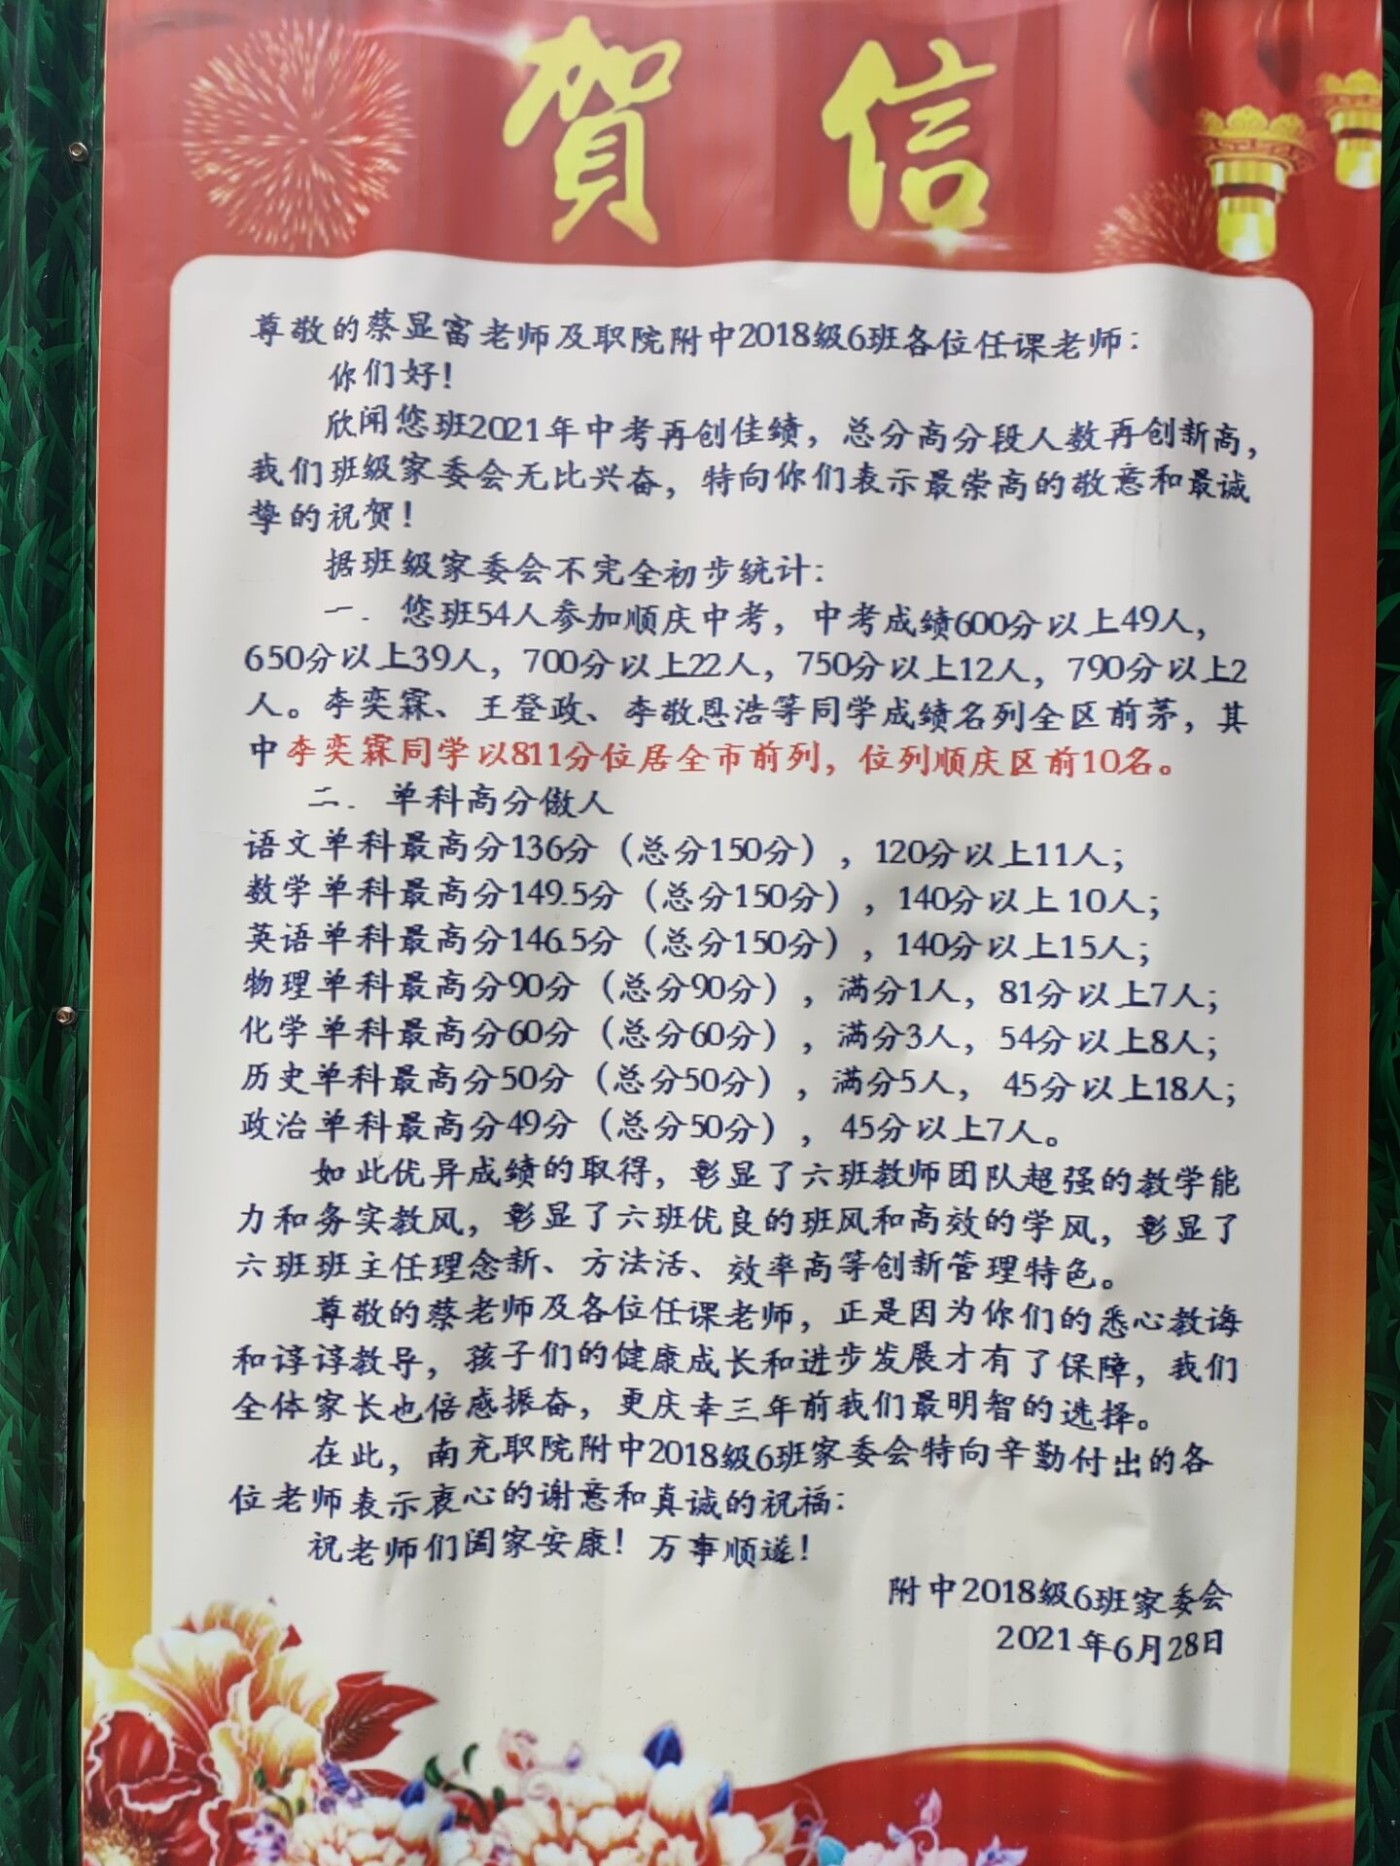 賀信
尊敬的蔡显富老师及职院附中2018级6班各位任课老师：
你们好！
欣闻您班2021年中考再创佳绩，总分高分段人数再创新高，
我们班级家委会无比兴奋，特向你们表示最崇高的敬意和最诚
挚的祝贺！
据班级家委会不完全初步统计：
一．您班54人参加顺庆中考，中考成绩600分以上49人，
650分以上39人，700分以上22人，750分以上12人，790分以上2
人。李奕霖、王登政、李敬恩浩等同学成绩名列全区前茅，其
中李奕霖同学以811分位居全市前列，位列顺庆区前10名。
二．单科高分傲人
语文单科最高分136分（总分150分），120分以上11人；
数学单科最高分149.5分（总分150分），140分以上10人；
英语单科最高分146.5分（总分150分），140分以上15人；
物理单科最高分90分（总分90分），满分1人，81分以上7人；
化学单科最高分60分（总分60分），满分3人，54分以上8人；
历史单科最高分50分（总分50分），满分5人， 45分以上18人；
政治单科最高分49分（总分50分），45分以上7人。
如此优异成绩的取得，彰显了六班教师团队超强的教学能
力和务实教风，彰显了六班优良的班风和高效的学风，彰显了
六班班主任理念新、方法活、效率高等创新管理特色。
尊敬的蔡老师及各位任课老师，正是因为你们的悉心教诲
和谆谆教导，孩子们的健康成长和进步发展才有了保障，我们
全体家长也倍感振奋，更庆幸三年前我们最明智的选择。
在此，南充职院附中2018级6班家委会特向辛勤付出的各
位老师表示衷心的谢意和真诚的祝福：
祝老师们阖家安康！万事顺遂！
附中2018级6班家委会
2021年6月28日